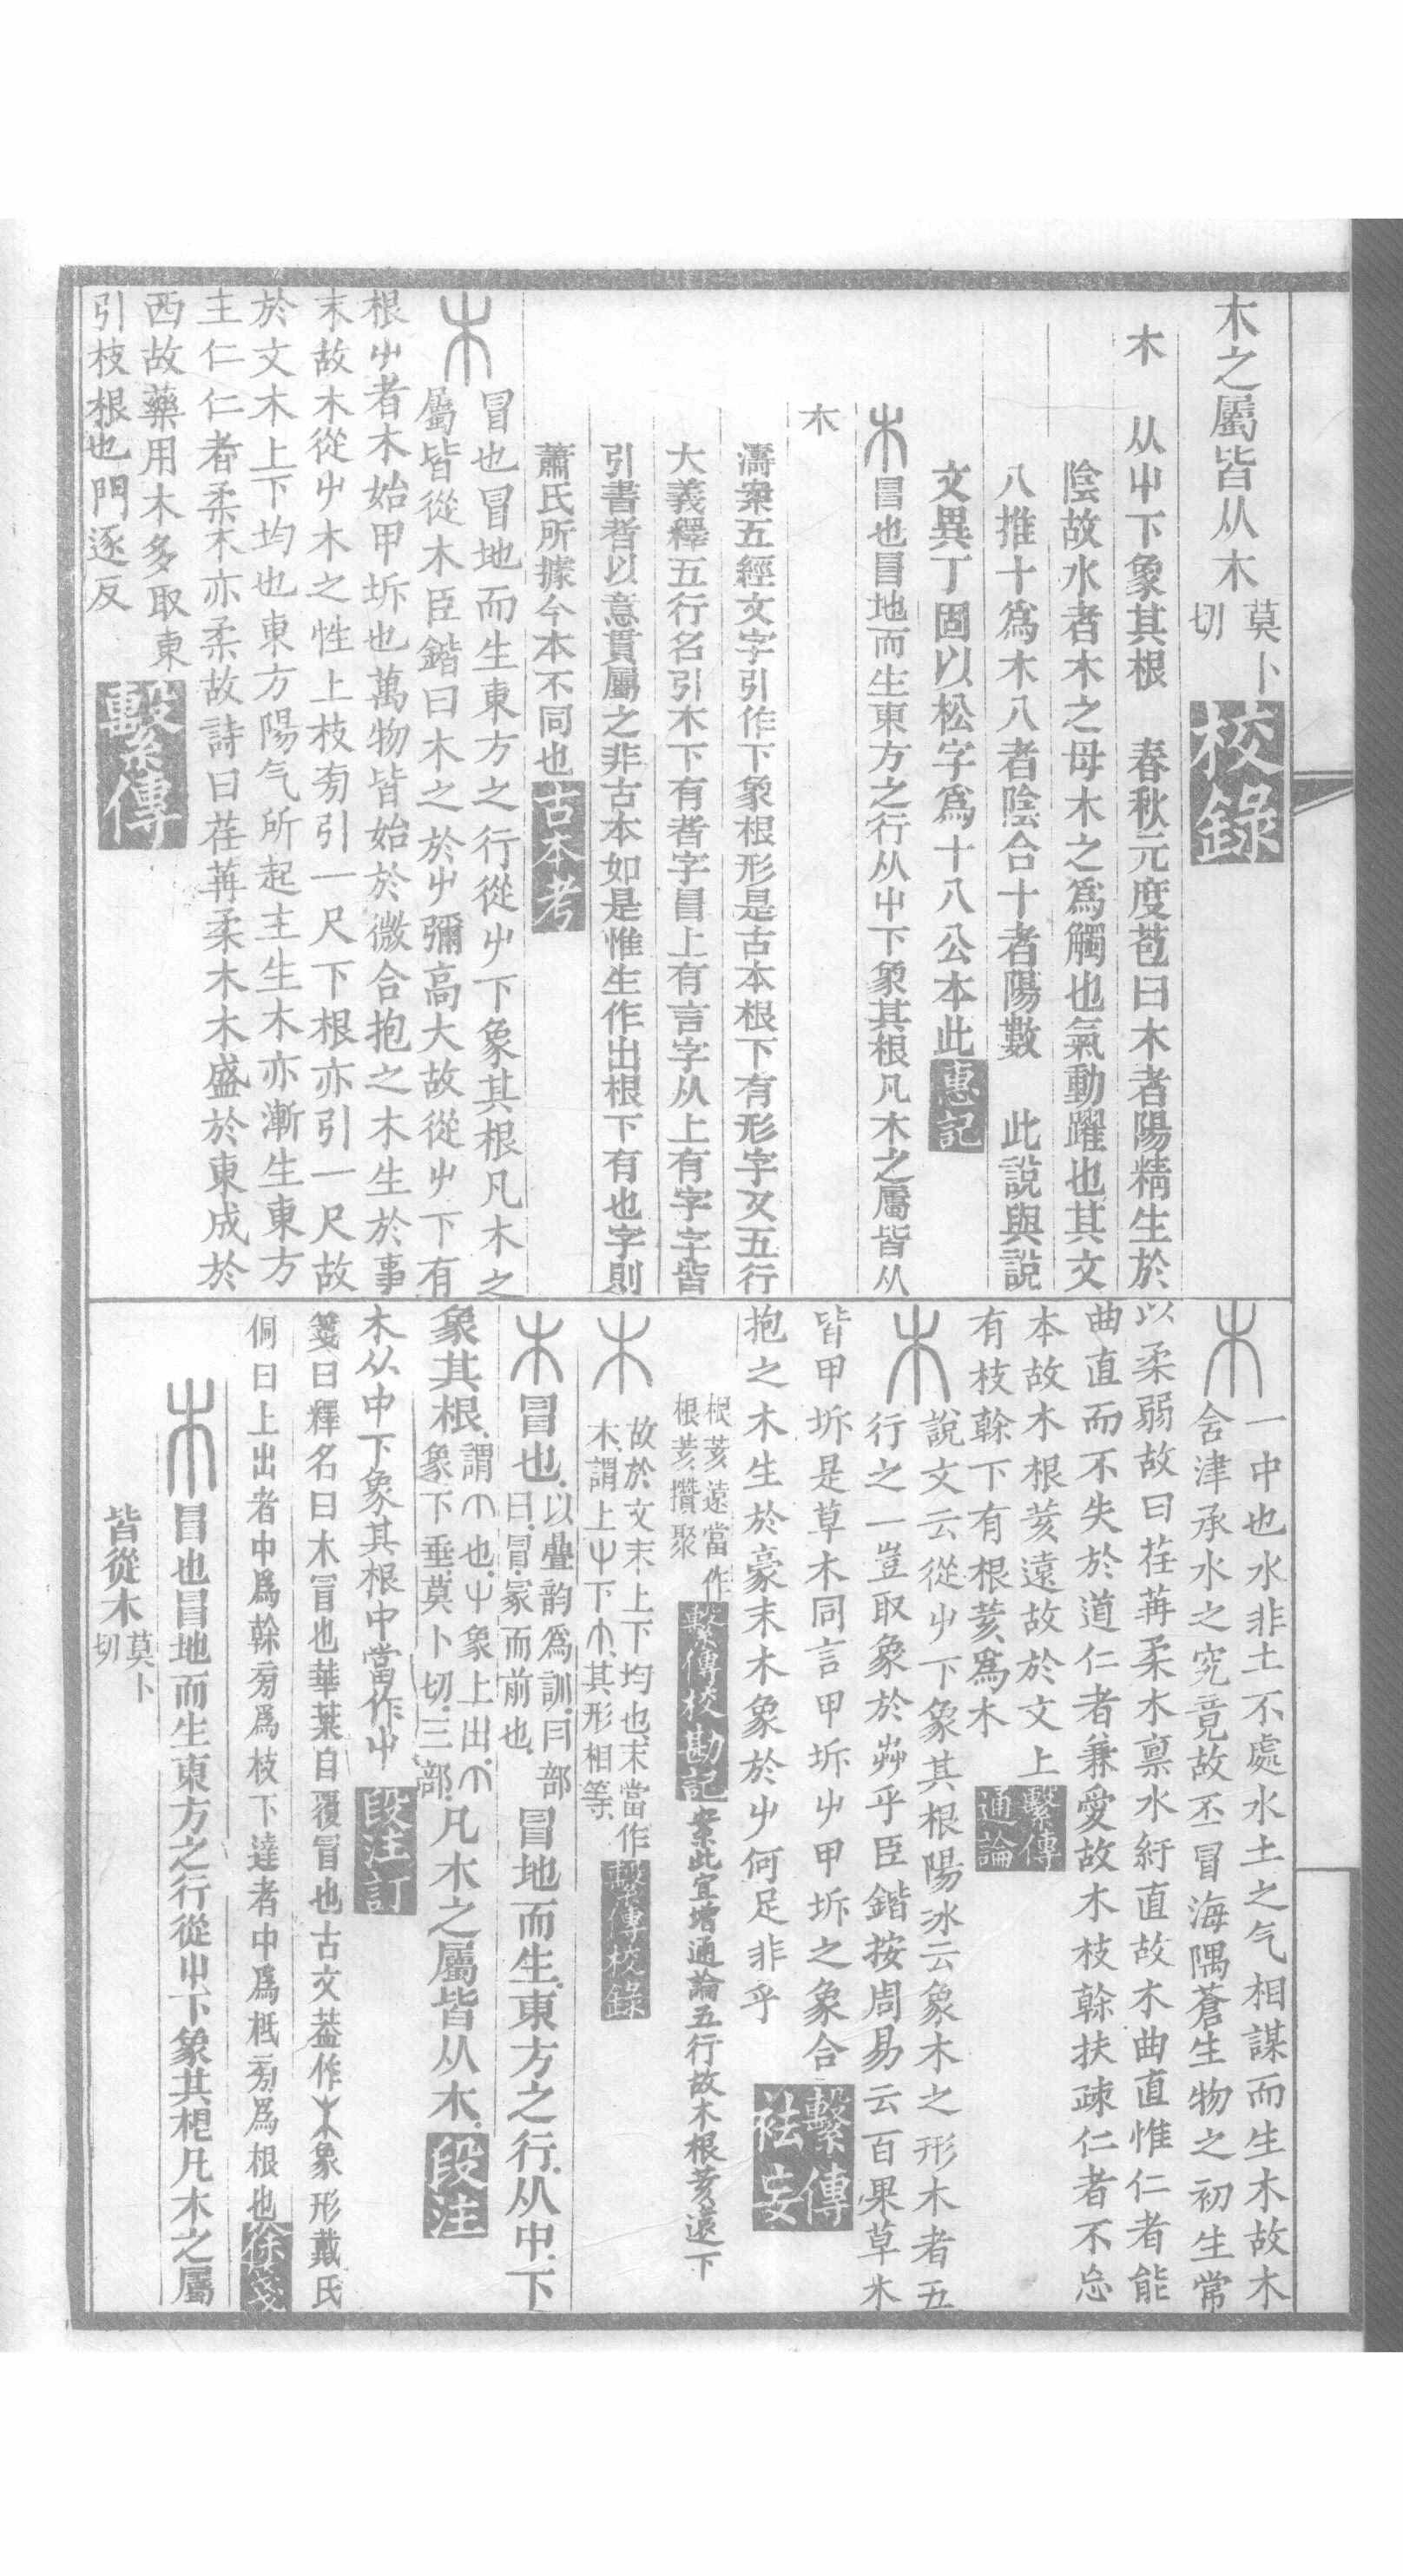 木之屬皆从木莫卜切校錄
木　从屮下象其根　春秋元度苞曰木者陽精生於
陰故水者木之母木之為觸也氣動躍也其文
八推十為木八者陰合十者陽數　此說與說
文異丁固以松字為十八公本此惠記
木冒也冒地而生東方之行从屮下象其根凡木之屬皆从
木
濤案五經文字引作下象根形是古本根下有形字又五行
大義釋五行名引木下有者字冒上有言字从上有字字皆
引書者以意貫屬之非古本如是惟生作出根下有也字則
蕭氏所據今本不同也古本考
木冒也冒地而生東方之行從屮下象其根凡木之
屬皆從木臣鍇曰木之於屮彌高大故從屮下有
根屮者木始甲坼也萬物皆始於微合抱之木生於事
末故木從屮木之性上枝㫄引一尺下根亦引一尺故
於文木上下均也東方陽气所起主生木亦漸生東方
主仁仁者柔木亦柔故詩曰荏苒柔木木盛於東成於
西故藥用木多取東
引枝根也門逐反繫傳
木一屮也水非土不處水土之气相謀而生木故木
含津承水之究竟故丕冒海隅蒼生物之初生常
以柔弱故曰荏苒柔木稟水紆直故木曲直惟仁者能
曲直而不失於道仁者兼愛故木枝榦扶疎仁者不忘
本故木根荄遠故於文上
有枝榦下有根荄為木繫傳通論
木說文云從屮下象其根陽冰云象木之形木者五
行之一豈取象於艸乎臣鍇按周易云百果草木
皆甲坼是草木同言甲坼屮甲坼之象合
抱之木生於豪末木象於屮何足非乎繫傳袪妄
根荄遠當作
根荄攢聚繫傳校勘記案此宜增通論五行故木根荄遠下
木故於文末上下均也末當作
木謂上屮下𣎳其形相等繫傳校錄
木冒也以疊韵為訓冃部曰冒冡而前也冒地而生東方之行从屮下
象其根謂𣎳也屮象上出𣎳象下垂莫卜切三部凡木之屬皆从木段注
木从屮下象其根中當作屮段注訂
箋曰釋名曰木冒也華葉自覆冒也古文葢作象形戴氏
侗曰上出者中為榦㫄為枝下達者中為柢㫄為根也徐箋
木冒也冒地而生東方之行從屮下象其根凡木之屬
皆從木莫卜切